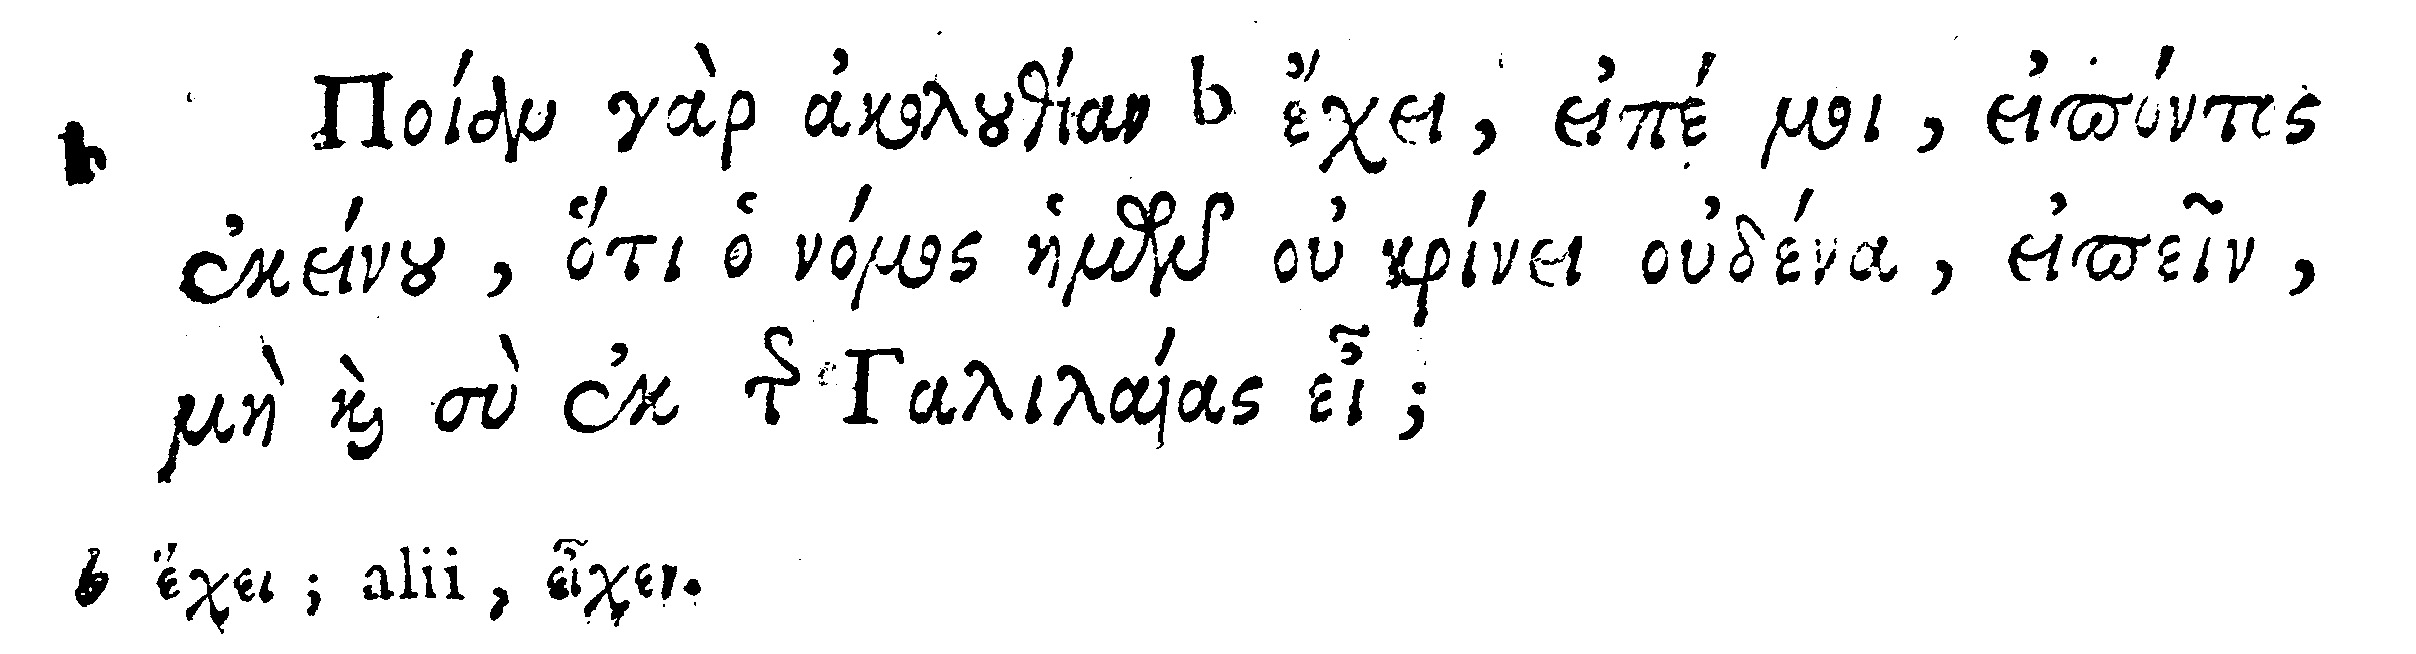 Ποίαν γὰρ ἀκολουθίαν b ἔχει, εἰπέ μοι, εἰπόντες
ἐκείνου, ὅτι ὁ νόμος ἡμῶν οὐ κρίνει οὐδένα, εἰπεῖν,
μὴ καὶ σὺ ἐκ τῆς Γαλιλαίας εἶ;
b ἔχει; alii, εἶχεν.